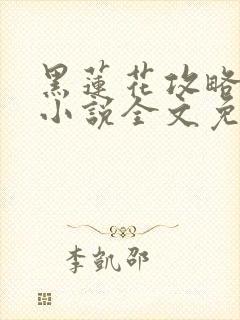 黑蓮花攻略
小說全文免
李凱邵